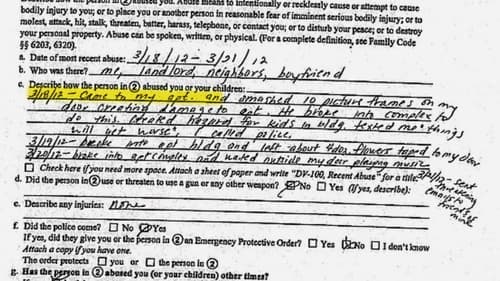 bodily injury to you; or to place you or another person in reasonable fear of imminent serious bodily injury; or to
molest, attack, hit, stalk, threaten, batter, harass, telephone, or contact you; or to disturb your peace; or to destroy
your personal property. Abuse can be spoken, written, or physical. (For a complete definition, see Family Code
§§ 6203, 6320).
a. Date of most recent abuse: 3/18/12 - 3/21/12
b. Who was there? me, landlord, neighbors, boyfriend
c. Describe how the person in ② abused you or your children:
3/18/12 - Came to my apt. and smashed 10 picture frames on my
door creating damage to apt. He broke into complex to
do this. Created hazard for kids in bldg. texted me "things
will get worse". I called police.
3/19/12 - broke into apt bldg and left about 4doz flowers taped to my door
3/20/12 - broke into apt complex and waited outside my door playing music
3/21/12 - sent threatening emails to friends of mine
☐ Check here if you need more space. Attach a sheet of paper and write "DV-100, Recent Abuse" for a title.
d. Did the person in ② use or threaten to use a gun or any other weapon? ☒ No ☐ Yes (If yes, describe):
e. Describe any injuries: none
f. Did the police come? ☐ No ☒ Yes
If yes, did they give you or the person in ② an Emergency Protective Order? ☐ Yes ☒ No ☐ I don't know
Attach a copy if you have one.
The order protects ☐ you or ☐ the person in ②
g. Has the person in ② abused you (or your children) other times?